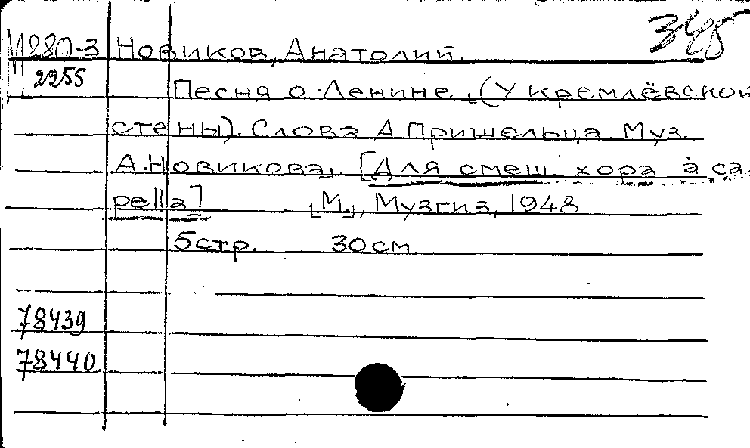 345
М280-3 Новиков, Анатолий.
2255 Песня о Ленине. (У кремлёвской
стены). Слова А Пришельца Муз.
А.Новикова. [Для смеш. хора а ca-
pella] [М.], Музгиз, 1948
5стр. 30см
78439
78440